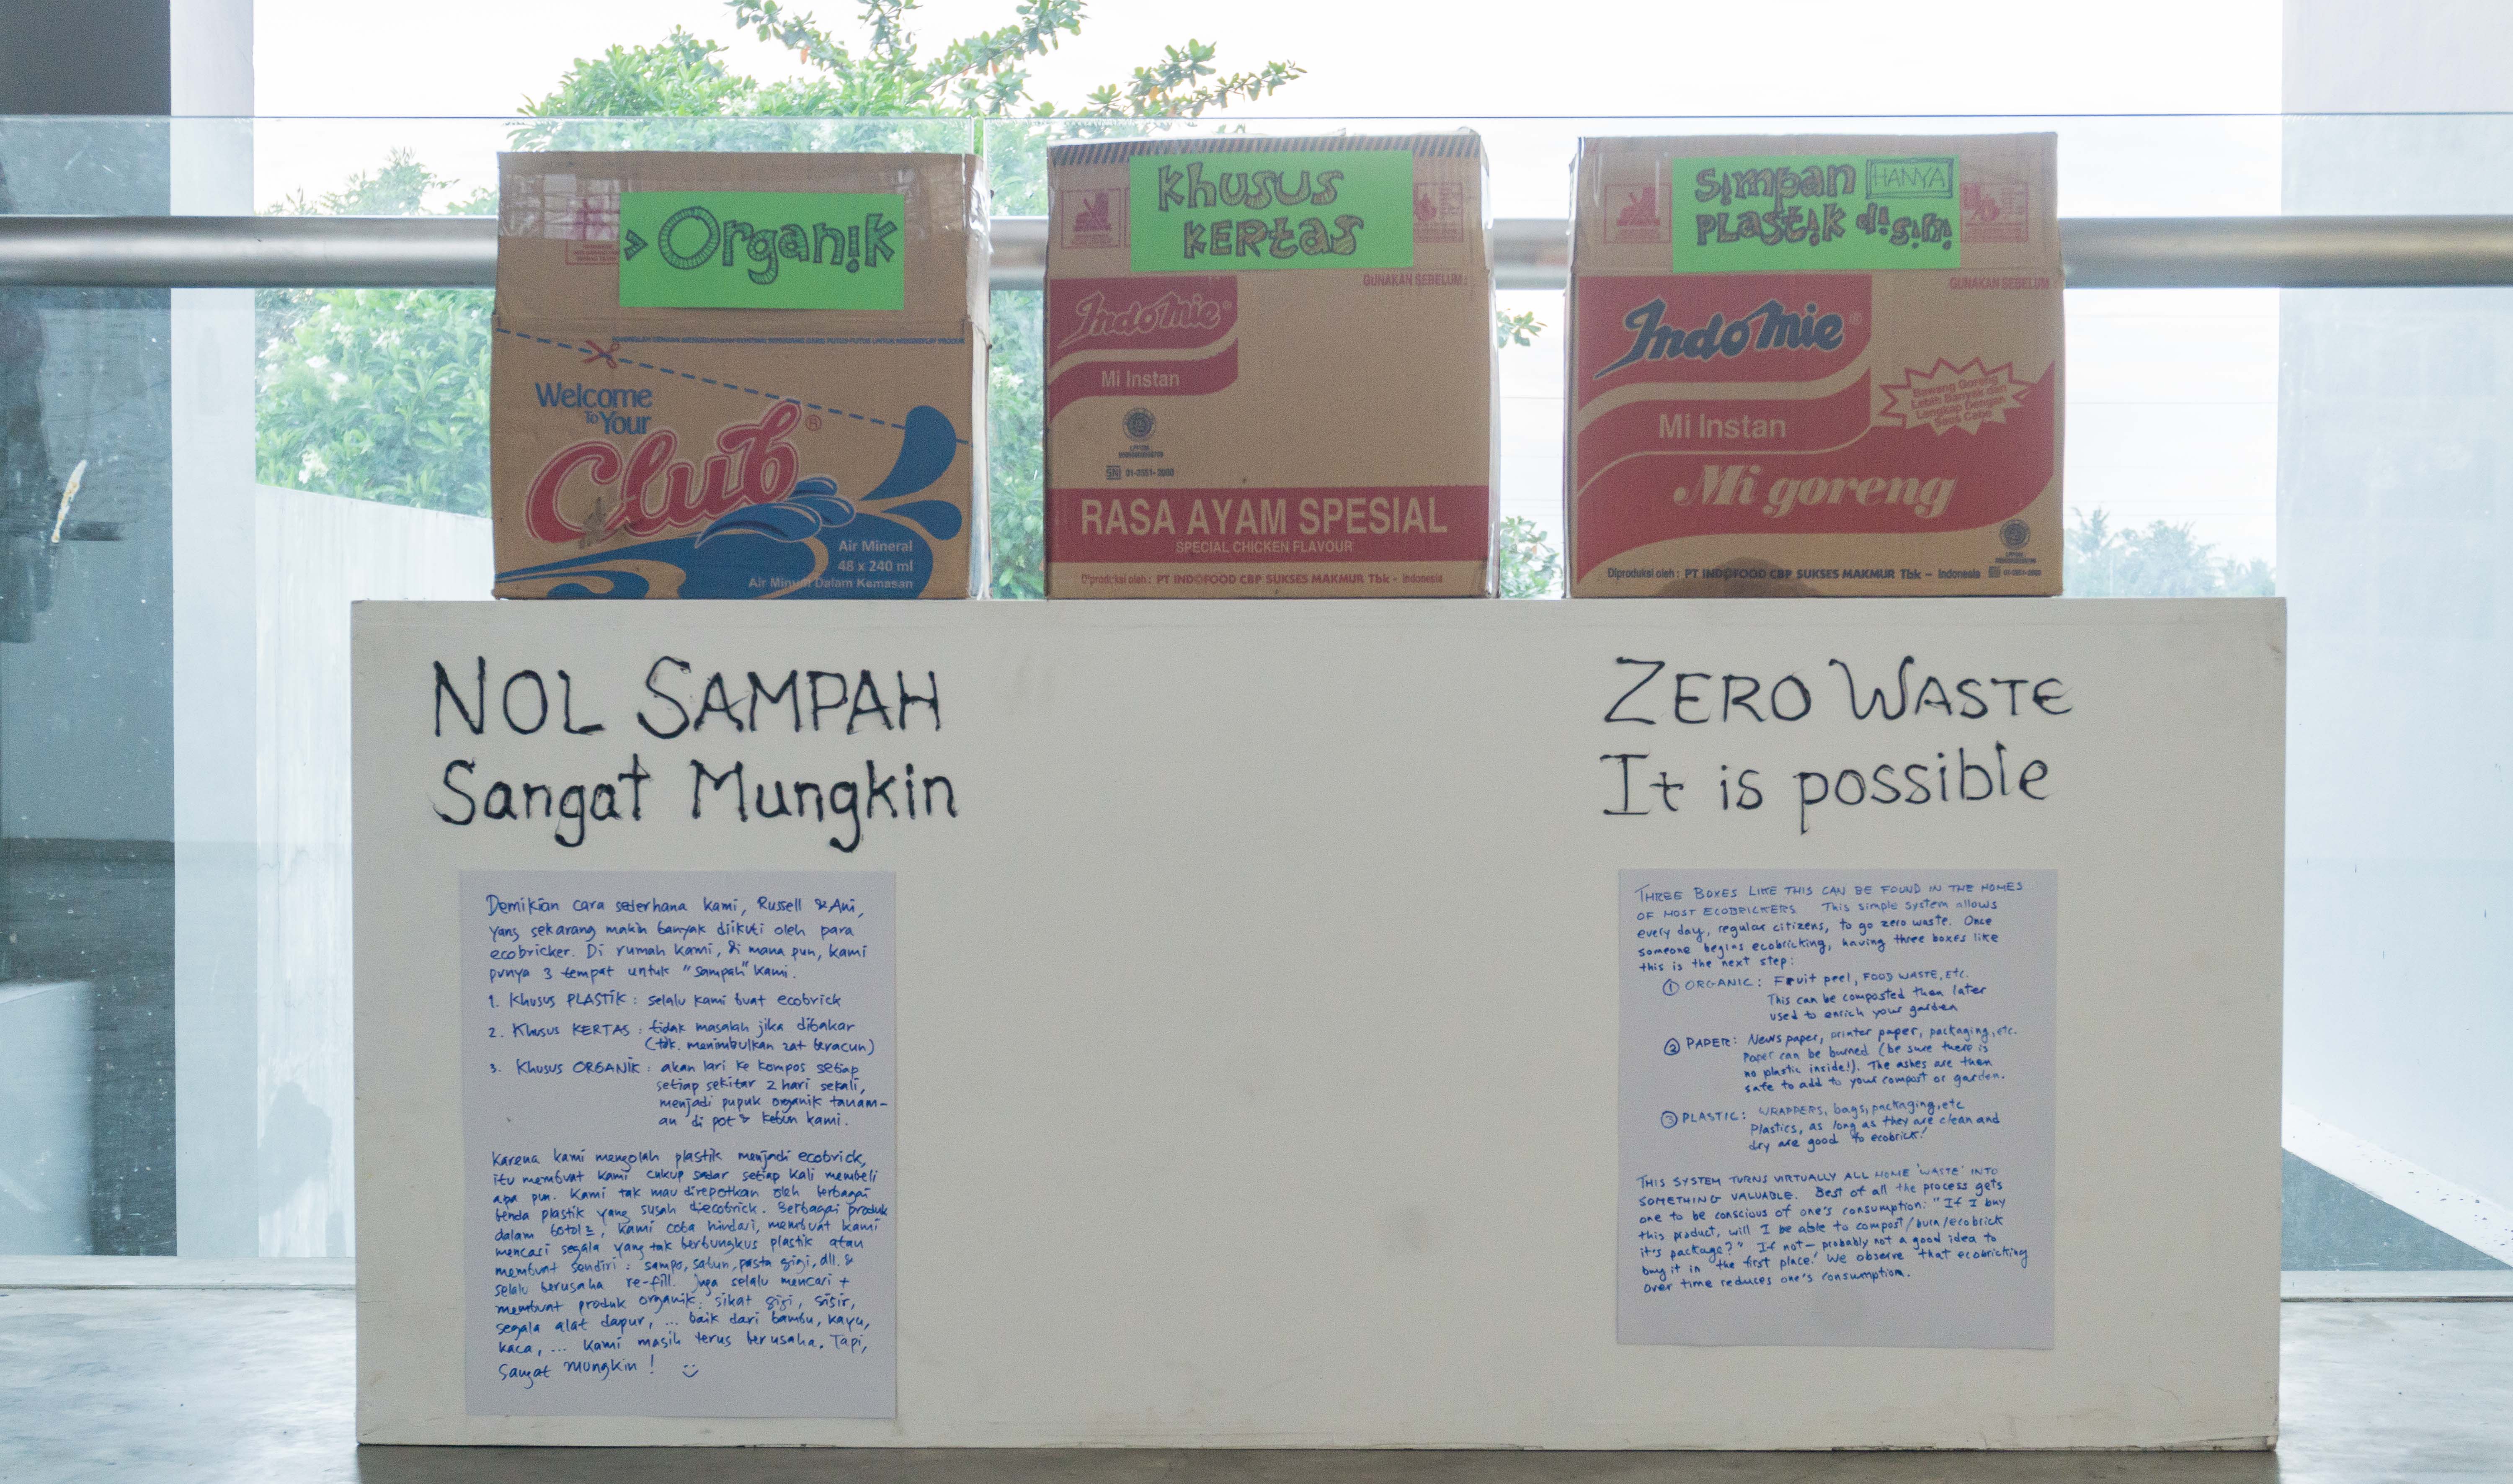 > Organik
Welcome
To Your
Club®
Air Mineral
48 x 240 ml
Air Minum Dalam Kemasan
Khusus
KERtas
GUNAKAN SEBELUM :
Indomie®
Mi Instan
SNI 01-3551-2000
RASA AYAM SPESIAL
SPECIAL CHICKEN FLAVOUR
Diproduksi oleh : PT INDOFOOD CBP SUKSES MAKMUR Tbk - Indonesia
Simpan HANYA
PLAStik disini
GUNAKAN SEBELUM :
Indomie®
Mi Instan
Bawang Goreng
Lebih Banyak dan
Lengkap Dengan
Saus Cabe
Mi goreng
Diproduksi oleh : PT INDOFOOD CBP SUKSES MAKMUR Tbk - Indonesia
NOL SAMPAH
Sangat Mungkin
Demikian cara sederhana kami, Russell & Ani,
yang sekarang makin banyak diikuti oleh para
ecobricker. Di rumah kami, di mana pun, kami
punya 3 tempat untuk "sampah" kami.
1. Khusus PLASTIK : selalu kami buat ecobrick
2. Khusus KERTAS : tidak masalah jika dibakar
(tdk. menimbulkan zat beracun)
3. Khusus ORGANIK : akan lari ke kompos setiap
setiap sekitar 2 hari sekali,
menjadi pupuk organik tanam-
an di pot & kebun kami.
Karena kami mengolah plastik menjadi ecobrick,
itu membuat kami cukup sadar setiap kali membeli
apa pun. Kami tak mau direpotkan oleh berbagai
benda plastik yang susah diecobrick. Berbagai produk
dalam botol2, kami coba hindari, membuat kami
mencari segala yang tak berbungkus plastik atau
membuat sendiri : sampo, sabun, pasta gigi, dll. &
selalu berusaha re-fill. Juga selalu mencari +
membuat produk organik : sikat gigi, sisir,
segala alat dapur, ... baik dari bambu, kayu,
kaca, ... Kami masih terus berusaha. Tapi,
Sangat mungkin !
ZERO WASTE
It is possible
THREE BOXES LIKE THIS CAN BE FOUND IN THE HOMES
OF MOST ECOBRICKERS. This simple system allows
every day, regular citizens, to go zero waste. Once
someone begins ecobricking, having three boxes like
this is the next step:
① ORGANIC: Fruit peel, FOOD WASTE, Etc.
This can be composted then later
used to enrich your garden
② PAPER: News paper, printer paper, packaging, etc.
Paper can be burned (be sure there is
no plastic inside!). The ashes are then
safe to add to your compost or garden.
③ PLASTIC: WRAPPERS, bags, packaging, etc
Plastics, as long as they are clean and
dry are good to ecobrick!
THIS SYSTEM TURNS VIRTUALLY ALL HOME 'WASTE' INTO
SOMETHING VALUABLE. Best of all the process gets
one to be conscious of one's consumption: "If I buy
this product, will I be able to compost/burn/ecobrick
it's package?" If not - probably not a good idea to
buy it in the first place! We observe that ecobricking
over time reduces one's consumption.